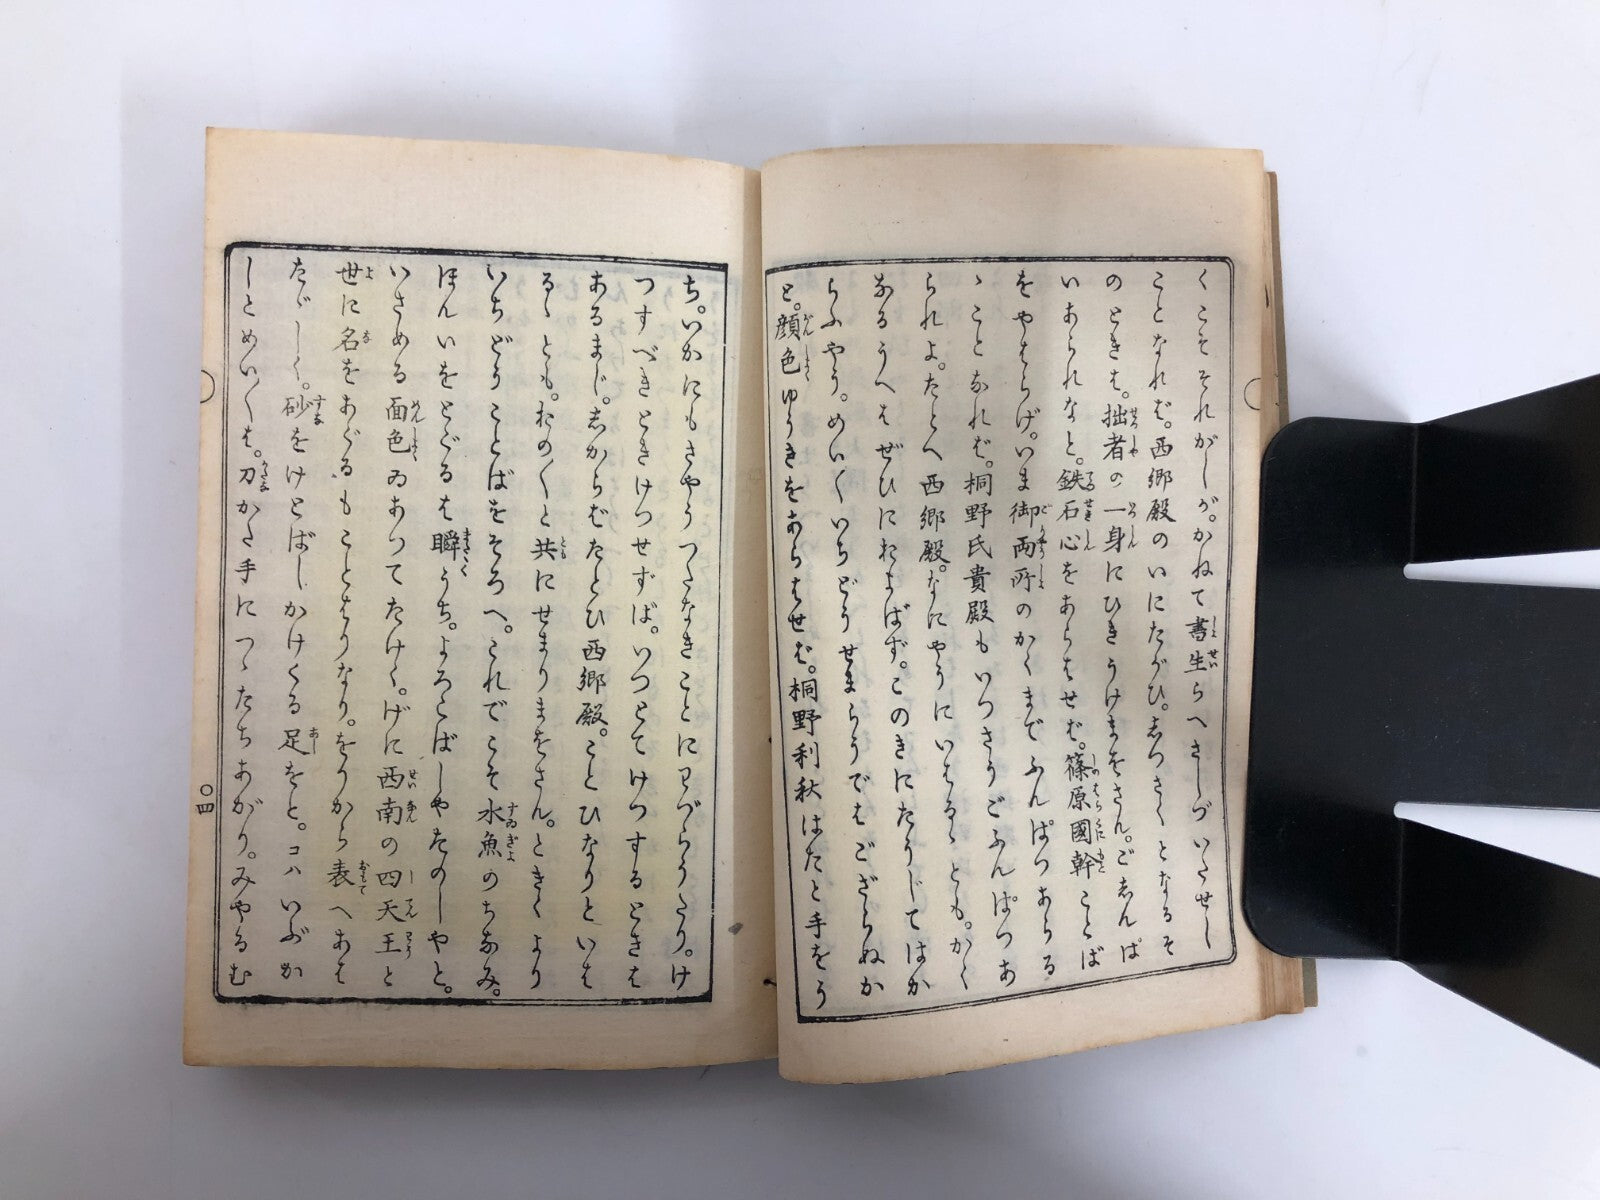 くこそそれがしが。かねて書生らへさしづいたせし
ことなれば。西郷殿のいにたがひ。志つきくとなるそ
のときは。拙者の一身にひきうけまをさん。ご志んぱ
いあられなと。鉄石心をあらはせば。篠原國幹ことば
をやはらげ。いま御両所のかくまでふんぱつあらる
ゝことなれば。桐野氏貴殿もいつさうごふんぱつあ
られよ。たとへ西郷殿。なにやうにいはるゝとも。かく
なるうへはぜひにおよばず。このきにたうじてはか
らふやう。めい〱いちどうせまらうではござらぬか
と。顔色ゆうきをあらはせば。桐野利秋はたと手をう
ち。いかにもさやうつたなきことにわづらうたり。け
つすべきときけつせずば。いつとてけつするときは
あるまじ。志からばたとひ西郷殿。ことひなりといは
るゝとも。おの〱と共にせまりまをさん。ときくより
いちどうことばをそろへ。これでこそ水魚のちなみ。
ほんいをとぐるは瞬うち。よろこばしやたのしやと。
いさめる面色ゐあつてたけく。げに西南の四天王と
世に名をあぐるもことはりなり。をりから表へあは
たゞしく。砂をけとばしかけくる足をと。コハいぶか
しとめい〱は。刀かた手につゝたちあがり。みやるむ
〇四